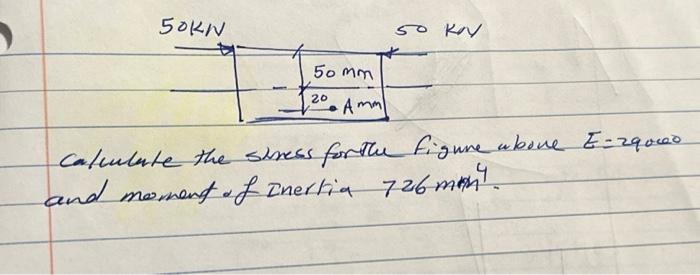 50KN 50 KN
50 mm
20 . A mm
Calculate the stress for the figure above E=290000
and moment of Inertia 726 mm⁴.